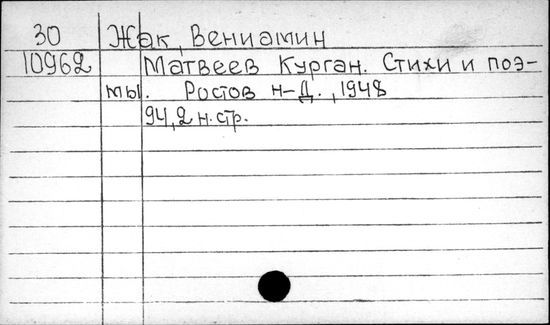 30 Жак, Вениамин
10962 Матвеев Курган. Стихи и поэ-
мы. Ростов н-Д., 1948
94,2 н.стр.